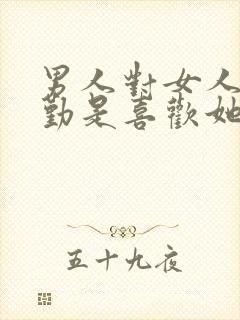 男人對女人
勤是喜歡她
五十九夜